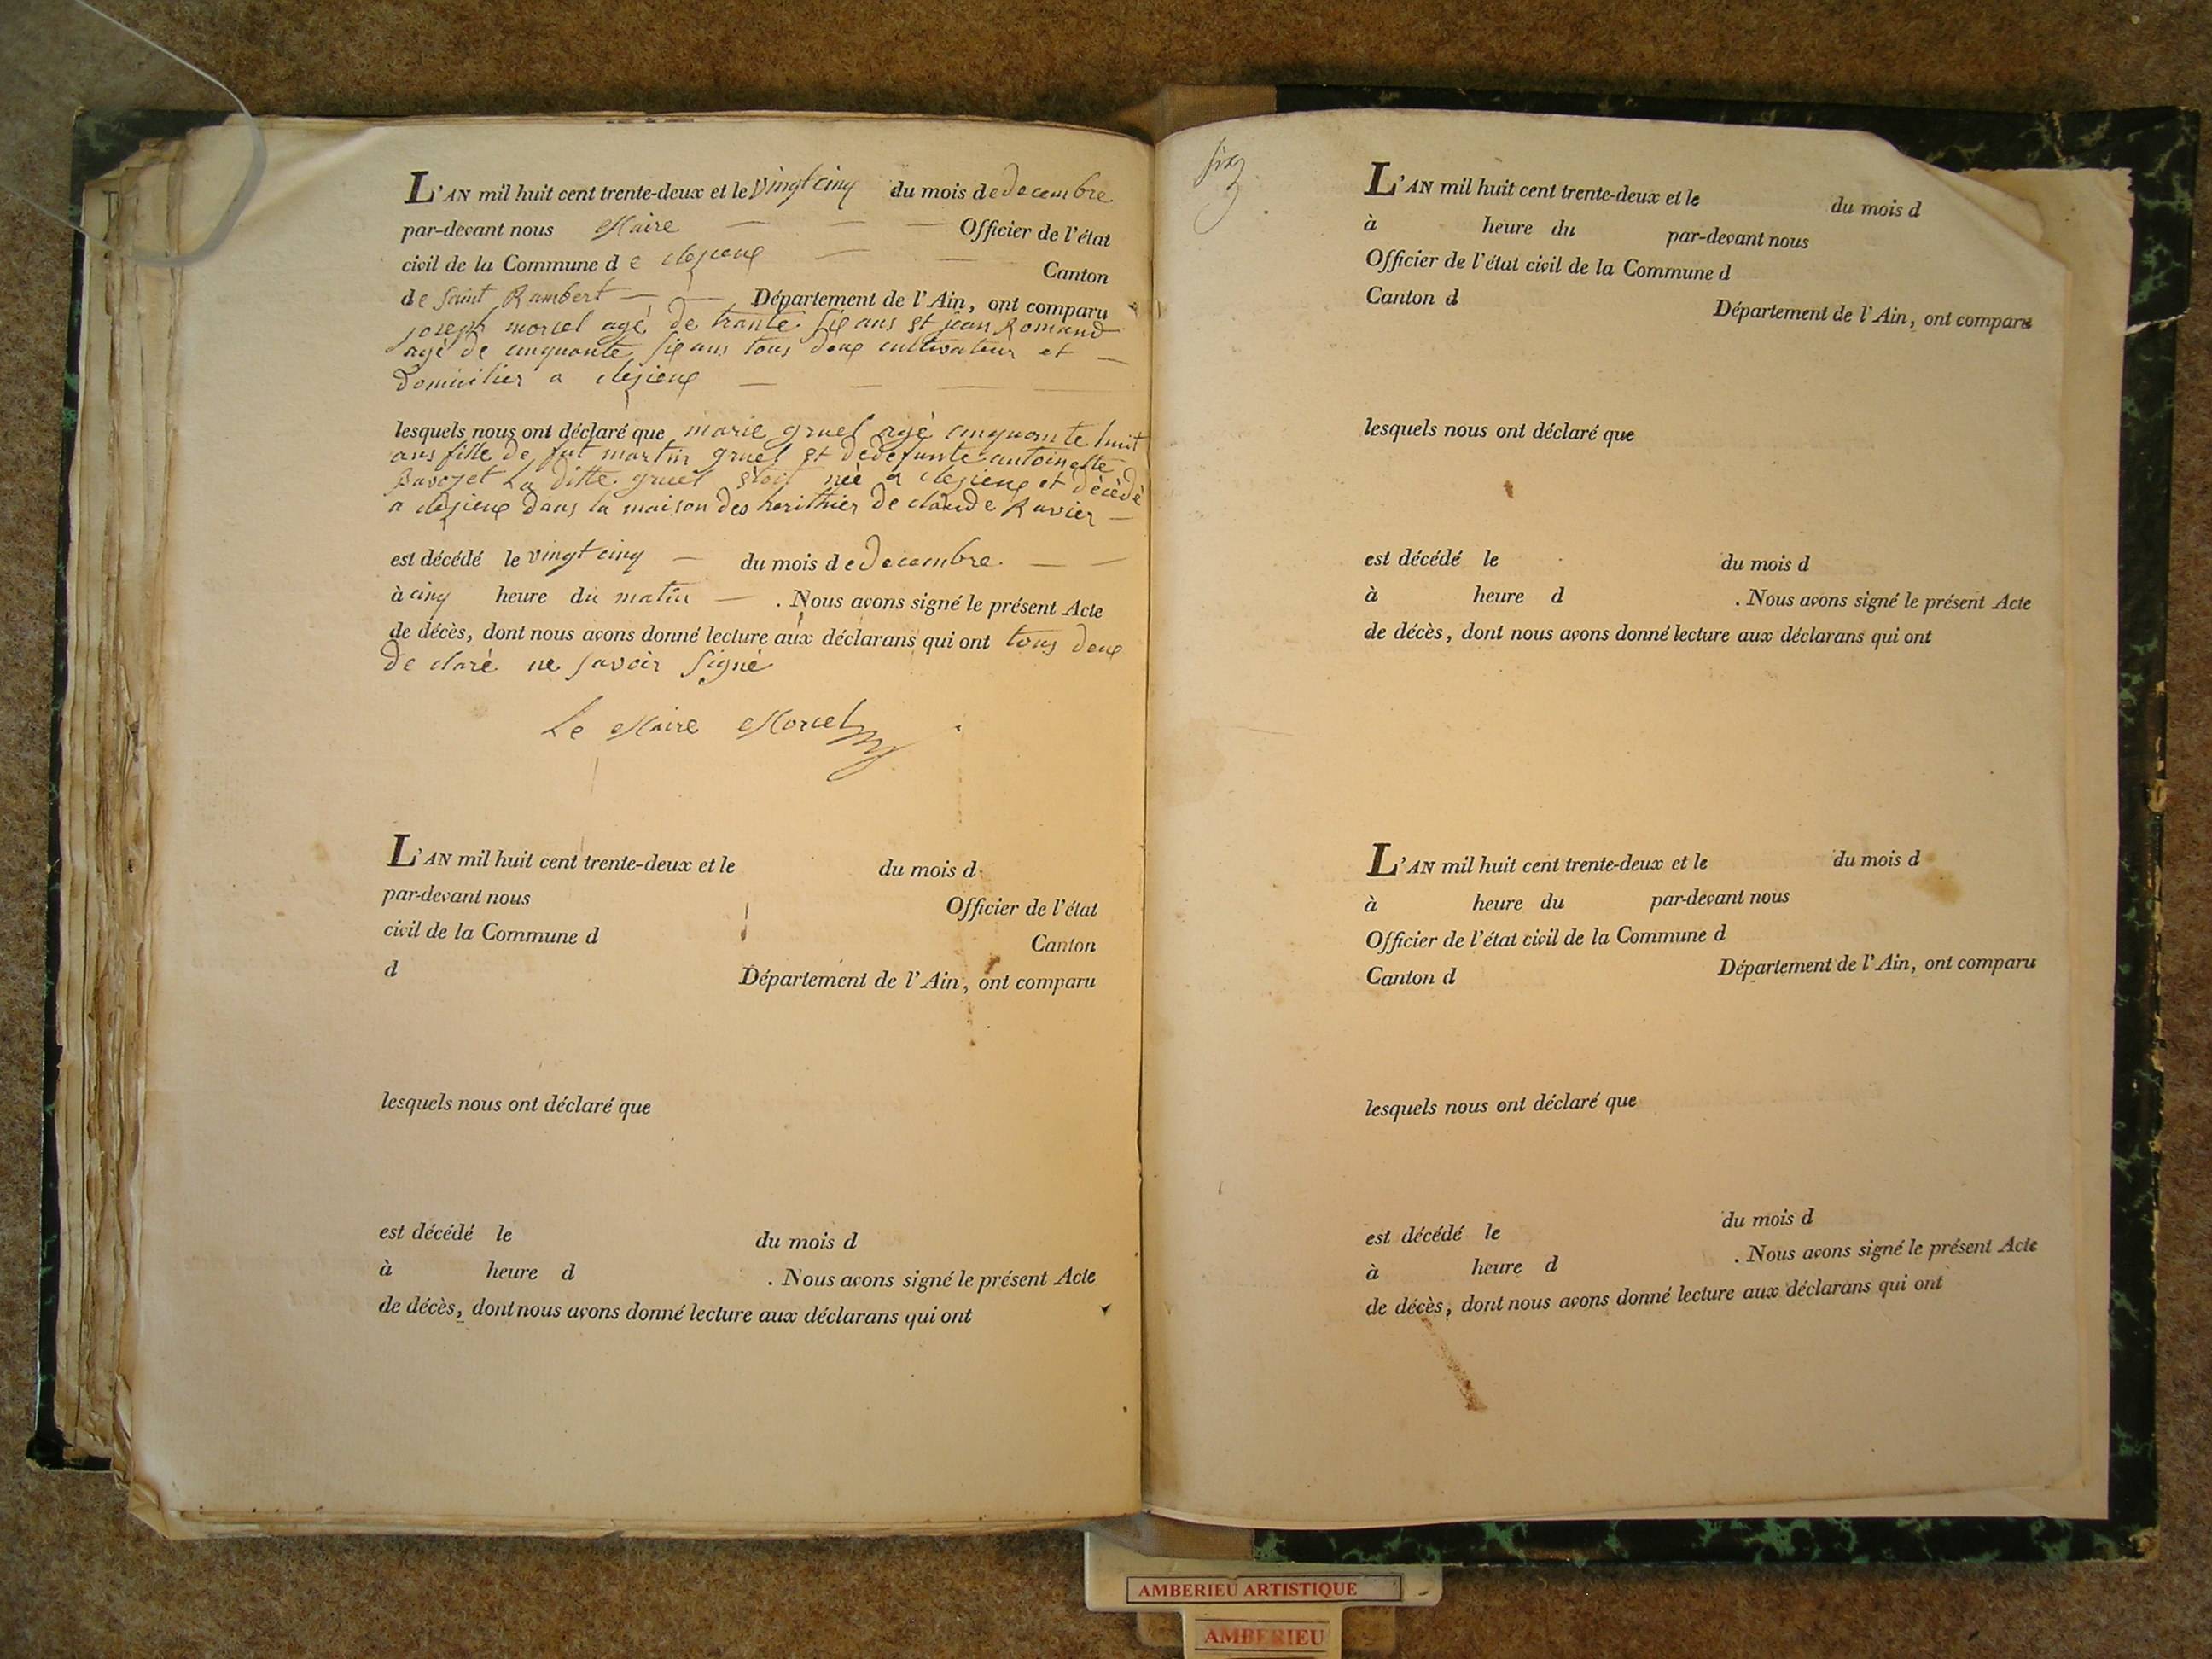 L'AN mil huit cent trente-deux et le vingt cinq du mois de decembre
par-devant nous Maire Officier de l'état
civil de la Commune de clezieux Canton
de saint Rambert Département de l'Ain, ont comparu
joseph morcel agé de trante six ans et jean Romand
agé de cinquante six ans tous deux cultivateur et
Domicilier a clezieux
lesquels nous ont déclaré que marie gruel agé cinquante huit
ans fille de fut martin gruel et dedefunte antoinette
La ditte gruel étoit née a clezieux et décédé
a clezieux dans la maison des herithier de claude Ravier
est décédé le vingt cinq du mois de decembre.
à cinq heure du matin . Nous avons signé le présent Acte
de décès, dont nous avons donné lecture aux déclarans qui ont tous deux
de claré ne savoir signé
Le Maire Morcel
L'AN mil huit cent trente-deux et le du mois d
par-devant nous Officier de l'état
civil de la Commune d Canton
d Département de l'Ain, ont comparu
lesquels nous ont déclaré que
est décédé le du mois d
à heure d . Nous avons signé le présent Acte
de décès, dont nous avons donné lecture aux déclarans qui ont
six
L'AN mil huit cent trente-deux et le du mois d
à heure du par-devant nous
Officier de l'état civil de la Commune d
Canton d Département de l'Ain, ont comparu
lesquels nous ont déclaré que
est décédé le du mois d
à heure d . Nous avons signé le présent Acte
de décès, dont nous avons donné lecture aux déclarans qui ont
L'AN mil huit cent trente-deux et le du mois d
à heure du par-devant nous
Officier de l'état civil de la Commune d
Canton d Département de l'Ain, ont comparu
lesquels nous ont déclaré que
est décédé le du mois d
à heure d . Nous avons signé le présent Acte
de décès, dont nous avons donné lecture aux déclarans qui ont
AMBERIEU ARTISTIQUE
AMBERIEU